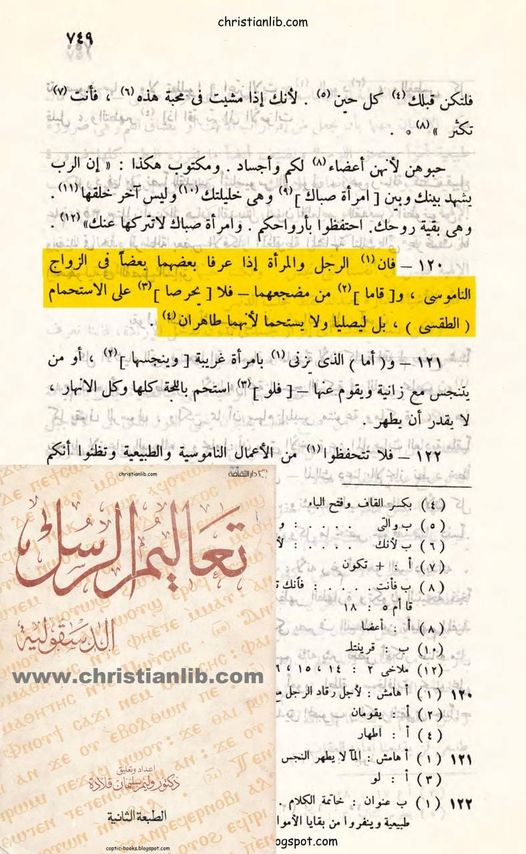 christianlib.com
٧٤٩
فلتكن قبلك(٤) كل حين(٥) . لأنك إذا مشيت فى محبة هذه(٦) ، فأنت(٧)
تكثر »(٨) .
حبوهن لأنهن أعضاء(٨) لكم وأجساد . ومكتوب هكذا : « إن الرب
يشهد بينك وبين [ امرأة صباك ](٩) وهى خليلتك(١٠) وليس آخر خلقها(١١) .
وهى بقية روحك . احتفظوا بأرواحكم . وامرأة صباك لاتتركها عنك»(١٢) .
١٢٠ – فان(١) الرجل والمرأة إذا عرفا بعضهما بعضاً فى الزواج
الناموسى ، و[ قاما ](٢) من مضجعهما – فلا [ يحرصا ](٣) على الاستحمام
( الطقسى ) ، بل ليصليا ولا يستحما لأنهما طاهران(٤) .
١٢١ – و( أما ) الذى يزنى(١) بامرأة غريبة [ وينجسها ](٢) ، أو من
يتنجس مع زانية ويقوم عنها – [ فلو ](٣) استحم باللجة كلها وكل الانهار ،
لا يقدر أن يطهر .
١٢٢ – فلا تتحفظوا(١) من الأعمال الناموسية والطبيعية وتظنوا أنكم
(٤) بكسر القاف وفتح الباء
(٥) ب والتى . . . . . : و
(٦) ب لأنك . . . . : لأ
(٧) أ : + تكون
(٨) ب فأنت . . . . : فأنك تك
قا أم ٥ : ١٨
(٨) أ : أعضا
(١٠) ب : قرينتك
(١٢) ملاخى ٢ : ١٤ ، ١٥ ، ٦
١٢٠ (١) أ هامش : لأجل رقاد الرجل مع
(٢) أ : يقومان
(٤) أ : اطهار
١٢١ (١) أ هامش : الما لا يطهر النجس
(٣) أ : لو
١٢٢ (١) ب عنوان : خاتمة الكلام .
طبيعية وينفروا من بقايا الأموا
ogspot.com
christianlib.com
دار الثقافة
تعاليم الرسل
الدسقولية
www.christianlib.com
إعداد وتعليق
دكتور وليم سليمان قلادة
الطبعة الثانية
coptic-books.blogspot.com